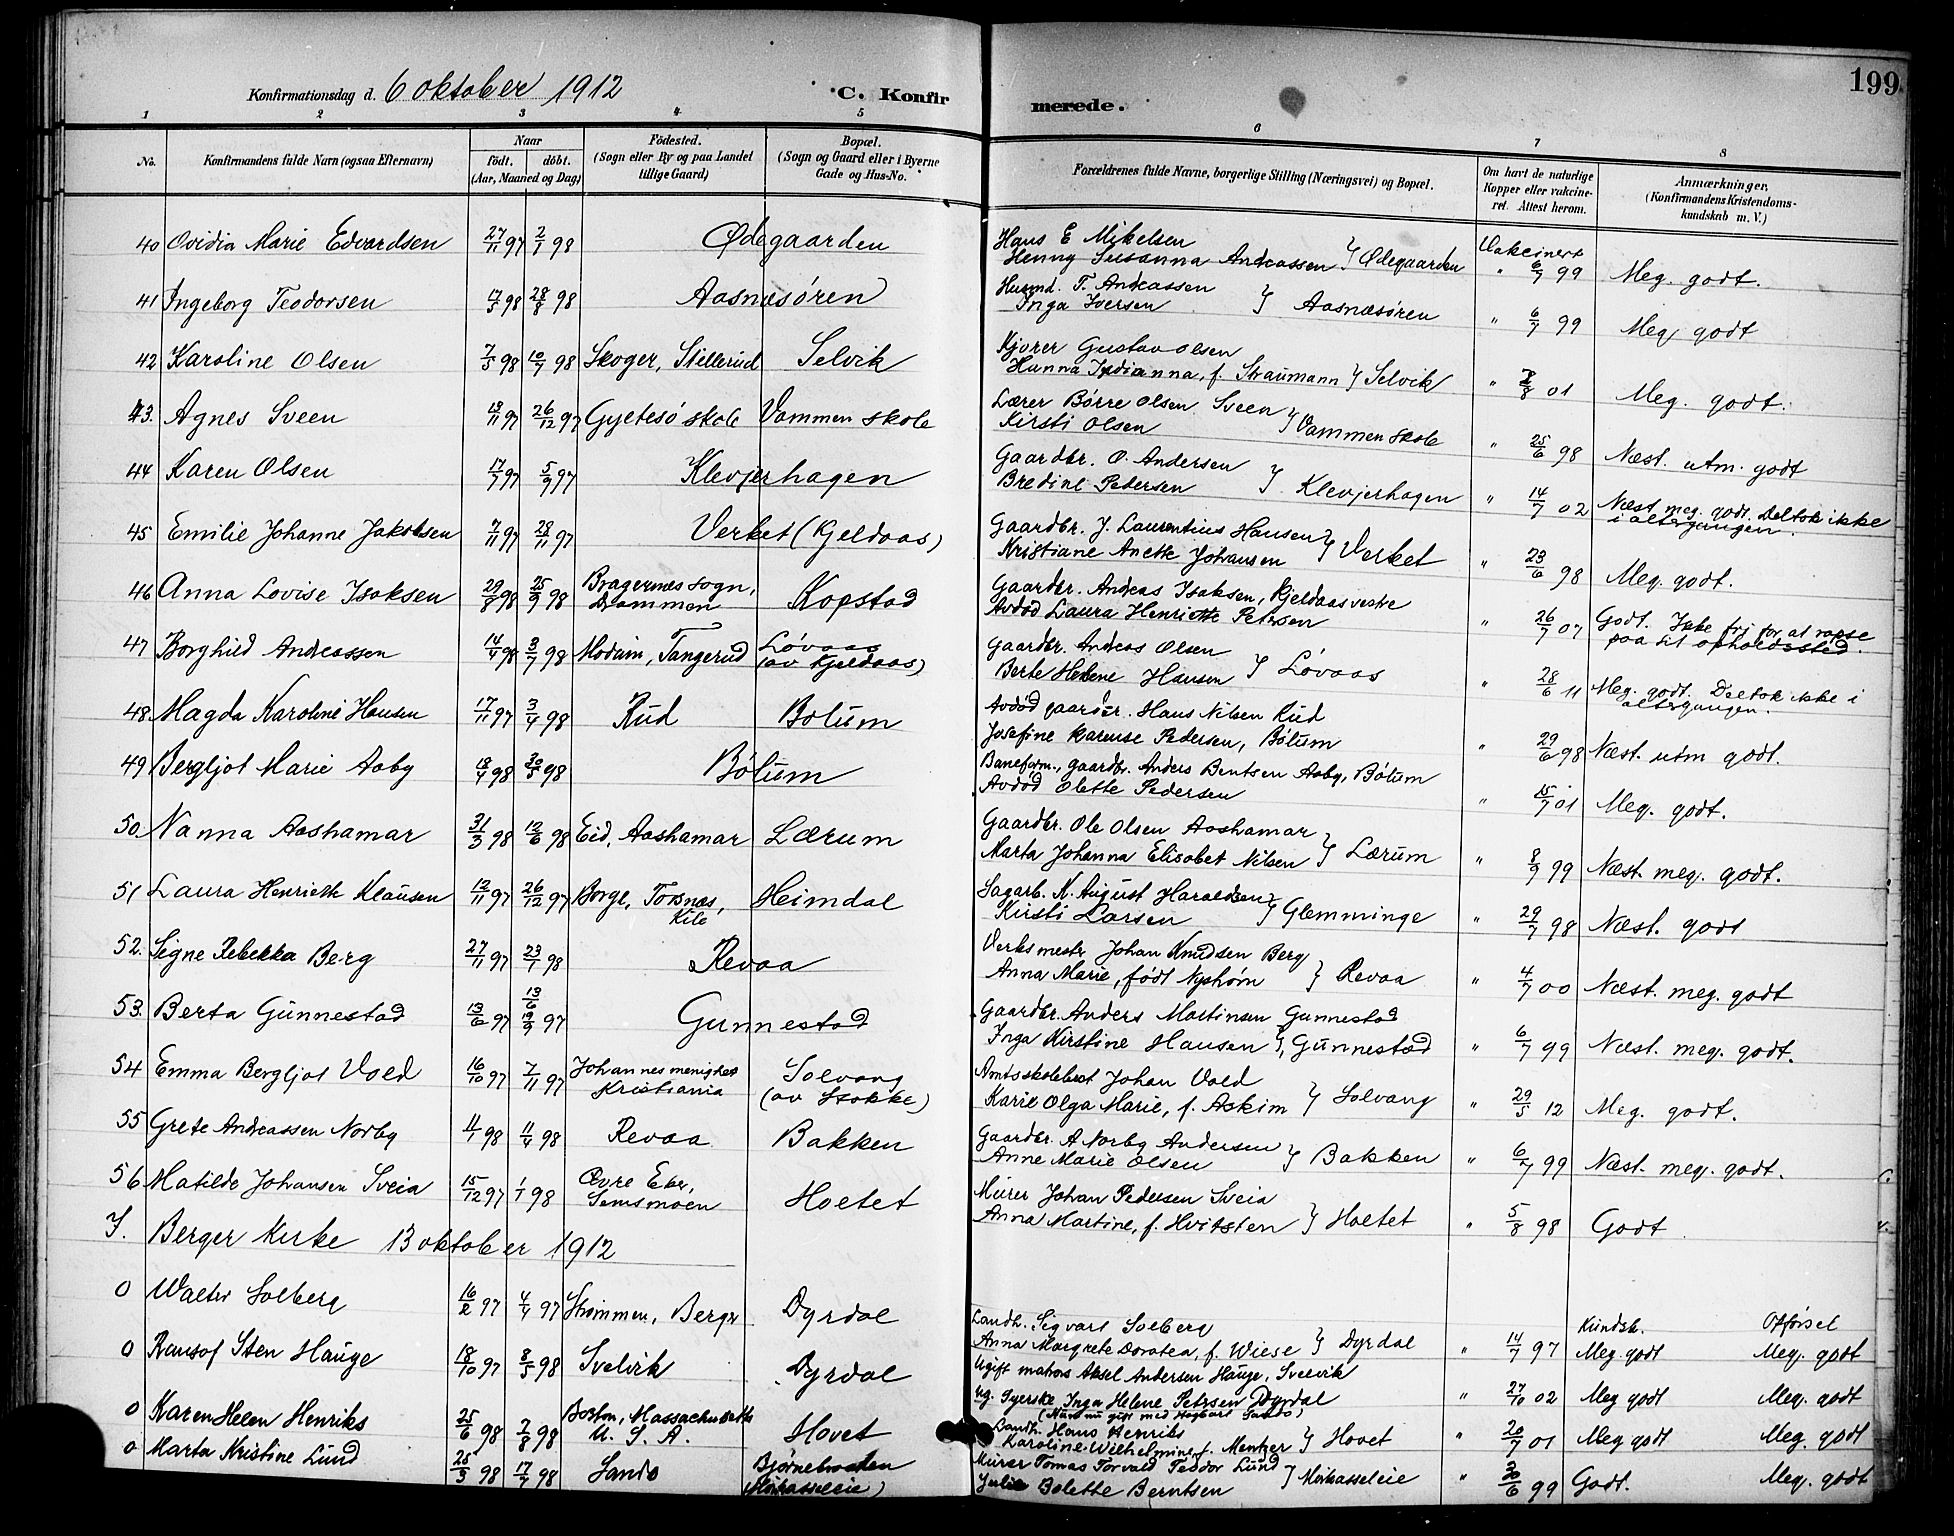 199
Konfirmationsdag d. 6 oktober 1912
C. Konfirmerede.
1 2 3 4 5 6 7 8
No.
Konfirmandens fulde Navn (ogsaa Efternavn)
Naar
födt. döbt.
(Aar, Maaned og Dag)
Födested.
(Sogn eller By og paa Landet
tillige Gaard)
Bopæl.
(Sogn og Gaard eller i Byerne
Gade og Hus-No.
Forældrenes fulde Navne, borgerlige Stilling (Næringsvei) og Bopæl.
Om havt de naturlige
Kopper eller vakcine-
ret. Attest herom.
Anmærkninger.
(Konfirmandens Kristendoms-
kundskab m. V.)
40 Ovidia Marie Edvardsen 27/11 97 2/1 98 Ødegaarden
Hans E Mikelsen
Henny Susanna Andreassen } Ødegaarden
Vakcinert
" 6/7 99 Meg. godt.
41 Ingeborg Teodorsen 17/5 98 28/8 98 Aasnæsøren
Husmd. T. Andreassen
Inga Iversen } Aasnæsøren " 6/7 99 Meg godt
42 Karoline Olsen 7/5 98 10/7 98 Skoger, Stillerud Selvik
Kjører Gustav Olsen
Hanna Indianna, f. Straumann } Selvik " 8 01 Meg. godt.
43. Agnes Sveen 18/11 97 26/12 97 Gyetesø skole Vammen skole
Lærer Børre Olsen Sveen
Kirsti Olsen } Vammen skole " 25/6 98 Næst. utm. godt
44 Karen Olsen 17/7 97 5/9 97 Klevjerhagen
Gaardbr. O. Andersen
Bredine Pedersen } Klevjerhagen " 14/7 02 Næst meg. godt. Deltok ikke
i altergangen.
45 Emilie Johanne Jakobsen 7/11 97 28/11 97 Verket (Gjeldaas)
Gaardbr. J. Laurentius Hansen
Kristiane Anette Johansen } Verket " 23/6 98 Meg. godt.
46 Anna Lovise Isaksen 29/8 98 25/9 98 Bragernes sogn,
Drammen Kopstad
Gaardbr. Andreas Isaksen, Kjeldaas vestre
Avdød Laura Henriette Petersen " 26/7 07 Godt. Ikke fri for at rapse
paa sit opholdssted.
47 Borghild Andreassen 14/4 98 3/7 98 Modum, Tangerud Løvaas
(av Kjeldaas)
Gaardbr. Andreas Olsen
Berte Helene Hansen } Løvaas " 28/6 11 Meg. godt. Deltok ikke i
altergangen.
48. Magda Karoline Hansen 17/11 97 3/4 98 Rud Bolum
Avdød gaardbr. Hans Nilsen Rud
Josefine Karense Pedersen, Bølum " 29/6 98 Næst. utm godt.
49 Bergljot Marie Aaby 18/4 98 30/5 98 Bølum
Baneform., gaardbr. Anders Bentsen Aaby, Bølum
Avdød Olette Pedersen " 15/7 01 Meg. godt.
50. Nanna Aashamar 31/3 98 12/6 98 Eid, Aashamar Lærum
Gaardbr. Ole Olsen Aashamar
Marta Johanna Elisabet Nilsen } Lærum " 8/9 99 Næst. meg. godt.
51 Laura Henriette Klausen 12/11 97 26/12 97 Borge, Torsnæs,
Kile Heimdal
Sagarb. K. August Haraldsen
Kirsti Larsen } Glemminge " 29/7 98 Næst. godt
52. Signe Rebekka Berg 27/11 97 23/1 98 Revaa
Verksmester Johan Knudsen Berg
Anna Marie, født Nyhørn } Revaa " 4/7 00 Næst. meg. godt
53. Berta Gunnestad 13/6 97 13/6 19/9 97 Gunnestad
Gaardbr. Anders Martinsen Gunnestad
Inga Kirstine Hansen }, Gunnestad " 6/7 99 Næst. meg. godt.
54 Emma Bergljot Vold 16/10 97 7/11 97 Johannes menighet
Kristiania Solvang
(av Stokke)
Amtsskolebest Johan Vold
Karie Olga Marie, f. Askim } Solvang " 29/5 12 Meg. godt.
55 Grete Andreassen Norby 4/1 98 11/4 98 Revaa Bakken
Gaardbr. A Norby Andersen
Anne Marie Olsen } Bakken " 6/7 99 Næst. meg. godt.
56 Matilde Johansen Sveia 15/12 97 1/1 98 Øvre Eker,
Semsmoen Hoetet
Murer Johan Pedersen Sveia
Anna Martine, f. Hvitsten } Hoetet " 5/8 98 Godt
I. Berger Kirke 13 oktober 1912
Kundsk. Opførsel
0 Walter Solberg 16/2 97 4/4 97 Strømmen, Berger Dyrdal
Landh. Sigvart Solberg
Anna Margrete Dorotea, f. Wiese } Dyrdal " 14/7 97 Meg godt Meg. godt
0 Ransof Sten Hauge 18/10 97 8/5 98 Svelvik Dyrdal
Ugift matros Aksel Andersen Hauge, Svelvik
ug. Syerske Inga Helene Petersen Dyrdal
(Hun nu gift med Hagbart Sando) " 27/10 02 Meg godt Meg. godt
0 Karen Helen Henriks 25/6 98 7/8 98 Boston, Massachusetts
U. S. A. Hovet
Landh. Hans Henriks
Karoline Wilhelmine f. Mentzer } Hovet " 20/7 01 Meg godt Meg. godt
0 Marta Kristine Lund 25/5 98 17/7 98 Sando Bjørnebraaten
(Mørkasseleie)
Murer Tomas Torvald Teodor Lund
Julie Bolette Berntsen } Mørkasseleie " 6 99 Godt. Meg. godt